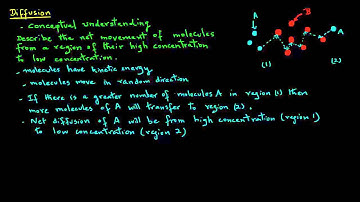 Diffusion
- conceptual understanding
Describe the net movement of molecules
from a region of their high concentration
to low concentration.
- molecules have kinetic energy
- molecules move in random direction
- If there is a greater number of molecules A in region (1) then
more molecules of A will transfer to region (2).
- Net diffusion of A will be from high concentration (region 1)
to low concentration (region 2)
A
B
A
(1)
(2)